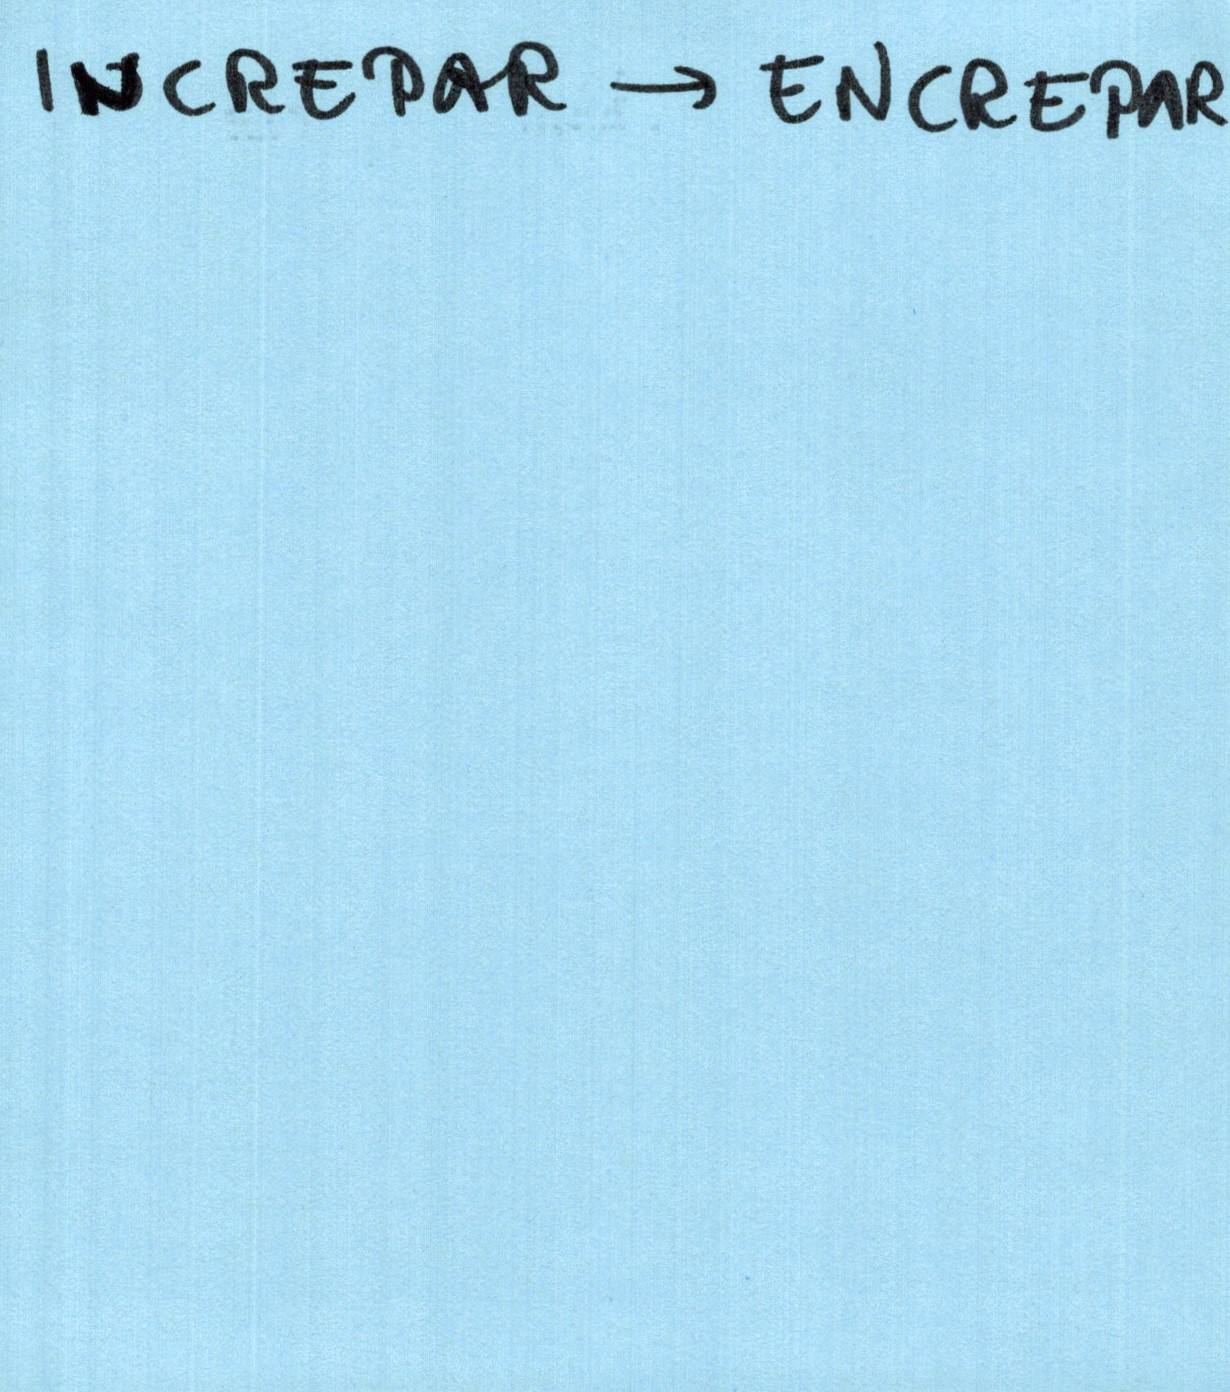 INCREPAR → ENCREPAR